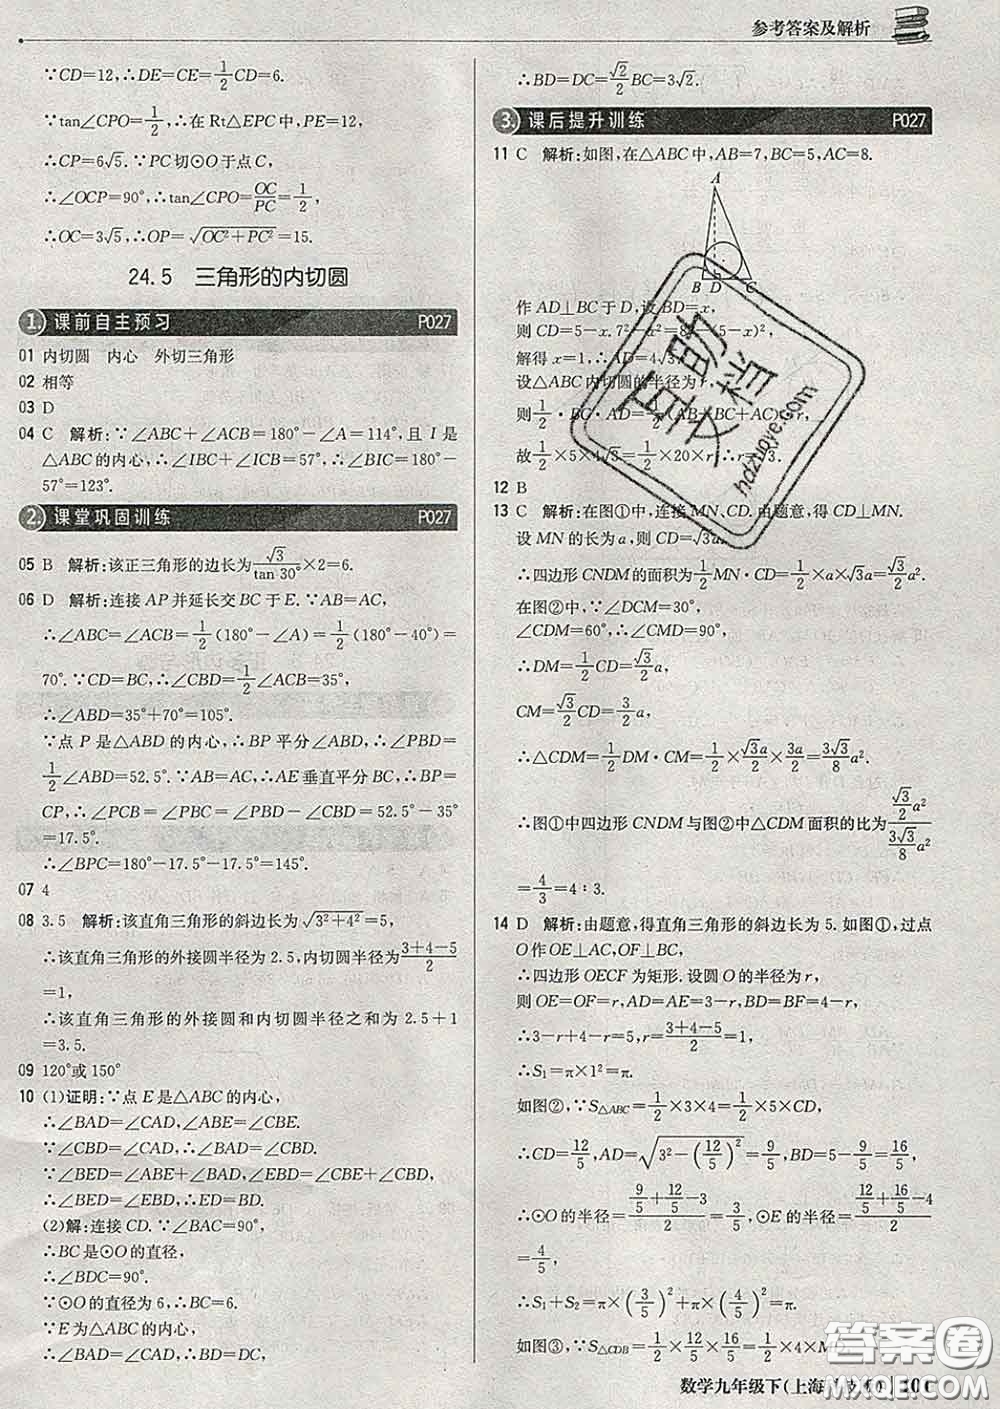 参考答案及解析
∵CD=12,∴DE=CE=1/2CD=6.
∵tan∠CPO=1/2,∴在 Rt△EPC 中,PE=12,
∴CP=6√5.∵PC切⊙O于点C,
∴∠OCP=90°,∴tan∠CPO=OC/PC=1/2,
∴OC=3√5,∴OP=√(OC²+PC²)=15.
24.5 三角形的内切圆
1. 课前自主预习 P027
01 内切圆 内心 外切三角形
02 相等
03 D
04 C 解析:∵∠ABC+∠ACB=180°-∠A=114°,且 I 是
△ABC的内心,∴∠IBC+∠ICB=57°,∴∠BIC=180°-
57°=123°.
2. 课堂巩固训练 P027
05 B 解析:该正三角形的边长为√3/tan 30°×2=6.
06 D 解析:连接 AP 并延长交 BC 于 E.∵AB=AC,
∴∠ABC=∠ACB=1/2(180°-∠A)=1/2(180°-40°)=
70°.∵BD=AC,∴∠CBD=1/2∠ACB=35°,
∴∠ABD=35°+70°=105°.
∵点 P 是△ABD 的内心,∴BP 平分∠ABD,∴∠PBD=
1/2∠ABD=52.5°.∵AB=AC,∴AE垂直平分BC,∴BP=
CP,∴∠PCB=∠PBC=∠PBD-∠CBD=52.5°-35°
=17.5°.
∴∠BPC=180°-17.5°-17.5°=145°.
07 4
08 3.5 解析:该直角三角形的斜边长为√(3²+4²)=5,
∴该直角三角形的外接圆半径为 2.5,内切圆半径为(3+4-5)/2
=1,
∴该直角三角形的外接圆和内切圆半径之和为 2.5+1
=3.5.
09 120°或 150°
10 (1)证明:∵点 E 是△ABC 的内心,
∴∠BAD=∠CAD,∠ABE=∠CBE.
∵∠CBD=∠CAD,∴∠BAD=∠CBD.
∵∠BED=∠ABE+∠BAD,∠EBD=∠CBE+∠CBD,
∴∠BED=∠EBD,∴ED=BD.
(2)解:连接 CD.∵∠BAC=90°,
∴BC是⊙O的直径,
∴∠BDC=90°.
∵⊙O的直径为 6,∴BC=6.
∵E为△ABC的内心,
∴∠BAD=∠CAD,∴BD=DC,
∴BD=DC=√2/2BC=3√2.
3. 课后提升训练 P027
11 C 解析:如图,在△ABC中,AB=7,BC=5,AC=8.
A
B D C
作 AD⊥BC于 D,设 BD=x,
则 CD=5-x.7²-x²=8²-(5-x)²,
解得 x=1,∴AD=4√3.
设△ABC内切圆的半径为r,
则1/2·BC·AD=1/2(AB+BC+AC)·r,
故1/2×5×4√3=1/2×20×r,∴r=√3.
12 B
13 C 解析:在图①中,连接MN、CD.由题意,得 CD⊥MN.
设 MN 的长为 a,则 CD=√3a.
∴四边形 CNDM 的面积为1/2MN·CD=1/2×a×√3a=√3/2a².
在图②中,∵∠DCM=30°,
∠CDM=60°,∴∠CMD=90°,
∴DM=1/2CD=√3/2a,
CM=√3/2CD=3/2a,
∴△CDM=1/2DM·CM=1/2×√3a/2×3a/2=3√3/8a²
∴图①中四边形 CNDM 与图②中△CDM 面积的比为(√3/2a²)/(3√3/8a²)
=4/3=4∶3.
14 D 解析:由题意,得直角三角形的斜边长为 5.如图①,过点
O 作 OE⊥AC,OF⊥BC,
∴四边形 OECF 为矩形.设圆 O 的半径为 r,
则 OE=OF=r,AD=AE=3-r,BD=BF=4-r,
∴3-r+4-r=5,r=(3+4-5)/2=1,
∴S₁=π×1²=π.
如图②,∵S△ABC=1/2×3×4=1/2×5×CD,
∴CD=12/5,AD=√(3²-(12/5)²)=9/5,BD=5-9/5=16/5,
∴⊙O 的半径=(9/5+12/5-3)/2=3/5,⊙E 的半径=(12/5+16/5-4)/2
=4/5,
∴S₁+S₂=π×(3/5)²+π×(4/5)²=π.
如图③,∵S△CDB=1/2×12/5×16/5=1/2×4×M
数学九年级下(上海
百助文档
hdzuoye.com
答案圈